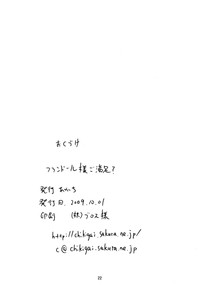 おくづけ
フランドール様ご満足?
発行 おいち
発行日. 2009.10.01
印刷 (株)プロス様
http://chikigai.sakura.ne.jp/
c@chikigai.sakura.ne.jp
22